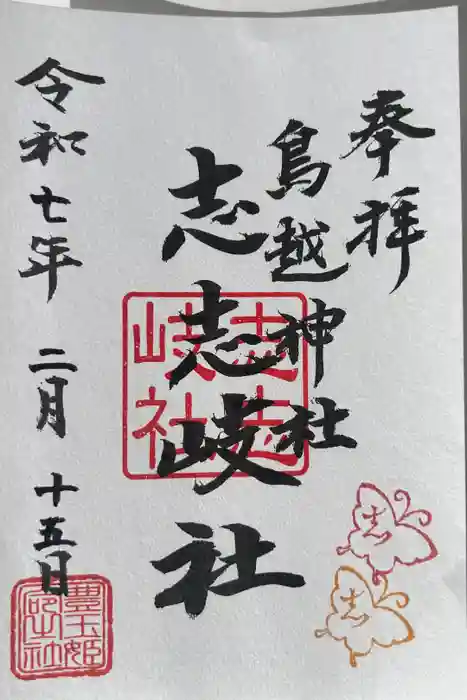 奉拝
鳥越神社
志志岐社
志志
岐社
令和七年 二月 十五日
豊玉姫
志
志